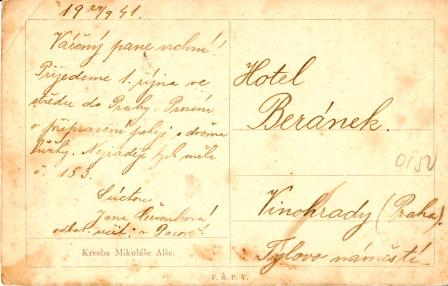 19 29/9 41.
Vážený pane vrchní!
Přijedeme 1. října ve
středu do Prahy. Prosím
o připravení pokoje s dvěma
lůžky. Nejraději bych měla
č. 153.
S úctou
Jana Červenková
odb. učit. z
Kresba Mikuláše Alše.
Hotel
Beránek.
Vinohrady (Praha).
Tylovo náměstí
F. Š. P. V.